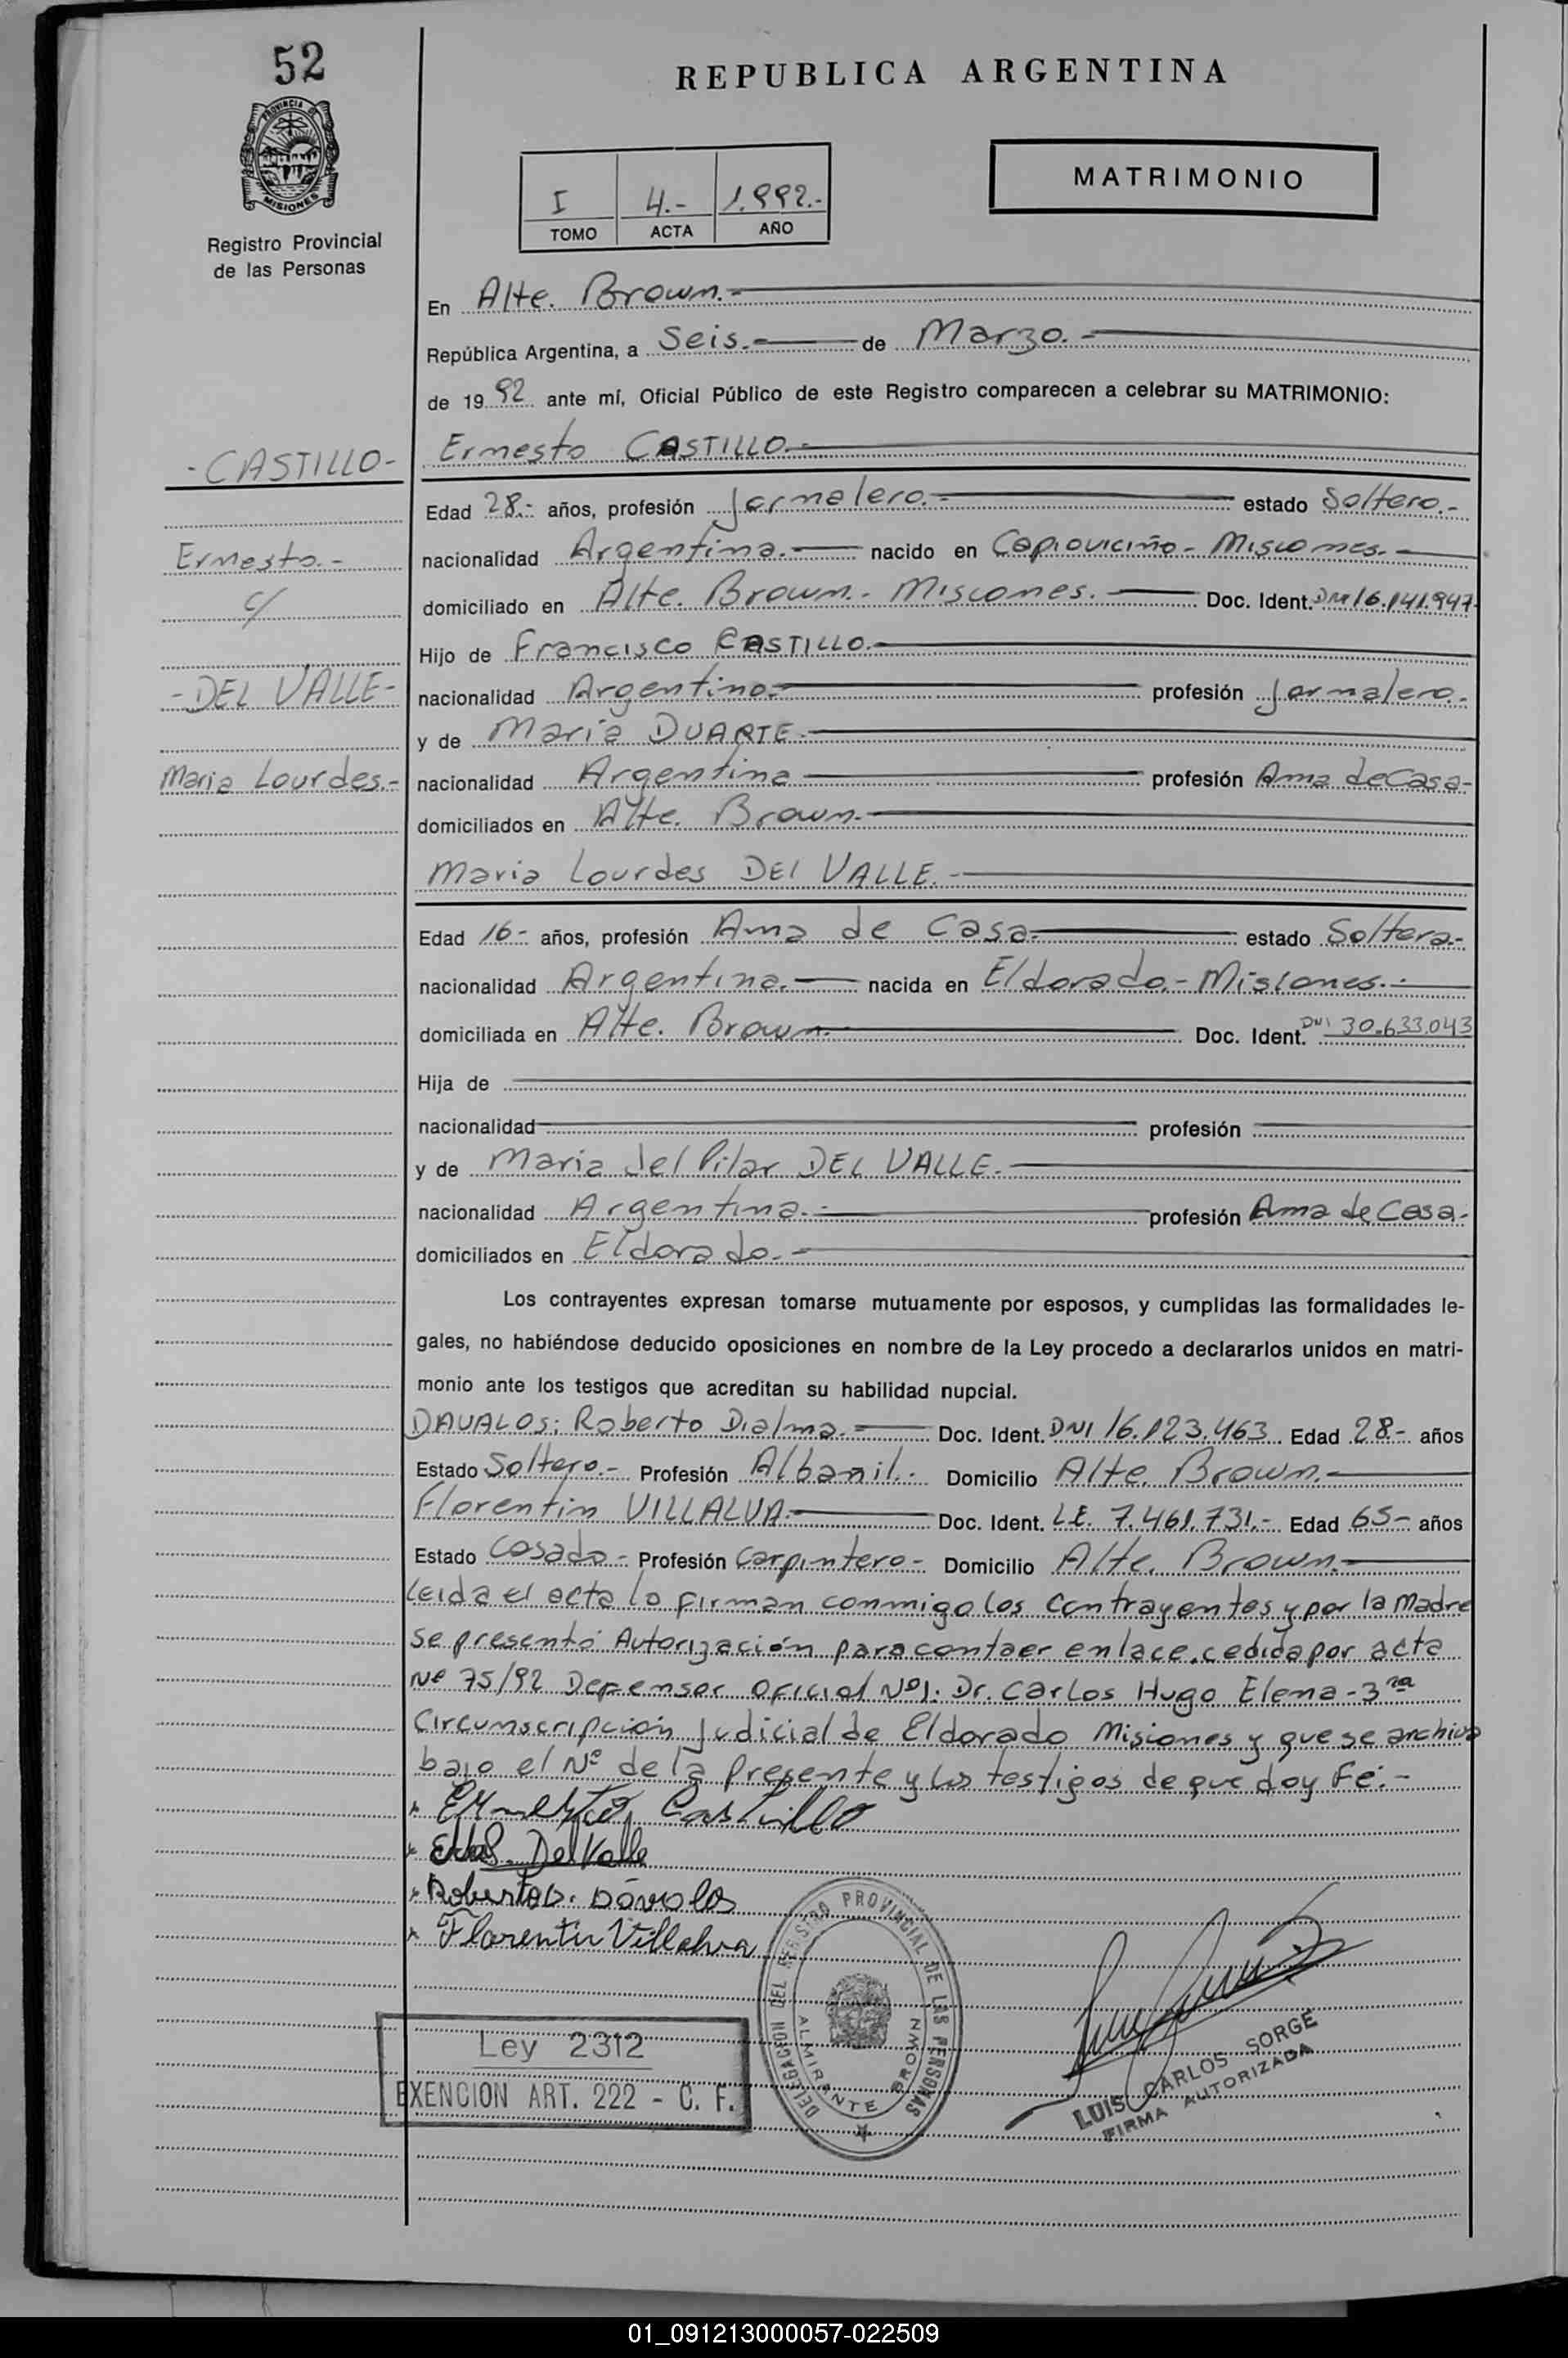 52
PROVINCIA DE
MISIONES
Registro Provincial
de las Personas
REPUBLICA ARGENTINA
I 4.- 1.992.-
TOMO ACTA AÑO
MATRIMONIO
En Alte. Brown.-
República Argentina, a Seis.- de Marzo.-
de 19 92 ante mí, Oficial Público de este Registro comparecen a celebrar su MATRIMONIO:
-CASTILLO-
Ernesto CASTILLO.-
Edad 28.- años, profesión Jornalero.- estado Soltero.-
Ernesto.-
nacionalidad Argentina.- nacido en Capioviciño - Misiones.-
c/
domiciliado en Alte. Brown.- Misiones.- Doc. Ident. DNI 16.141.947-
Hijo de Francisco CASTILLO.-
-DEL VALLE-
nacionalidad Argentino.- profesión Jornalero.-
y de Maria DUARTE.-
Maria Lourdes.-
nacionalidad Argentina profesión Ama de Casa-
domiciliados en Alte. Brown.-
Maria Lourdes DEl VALLE.-
Edad 16- años, profesión Ama de Casa- estado Soltera-
nacionalidad Argentina.- nacida en Eldorado.- Misiones.-
domiciliada en Alte. Brown.- Doc. Ident. DNI 30.633.043
Hija de
nacionalidad profesión
y de Maria del Pilar DEL VALLE.-
nacionalidad Argentina.- profesión Ama de Casa-
domiciliados en Eldorado.-
Los contrayentes expresan tomarse mutuamente por esposos, y cumplidas las formalidades le-
gales, no habiéndose deducido oposiciones en nombre de la Ley procedo a declararlos unidos en matri-
monio ante los testigos que acreditan su habilidad nupcial.
DAVALOS: Roberto Dialma.- Doc. Ident. DNI 16.123.463 Edad 28.- años
Estado Soltero.- Profesión Albanil.- Domicilio Alte. Brown.-
Florentin VILLALVA.- Doc. Ident. L.E. 7.461.731.- Edad 65- años
Estado Casado - Profesión Carpintero- Domicilio Alte. Brown.-
Leida el acta la firman conmigo los contrayentes y por la Madre
se presentó Autorización para contaer enlace, cedida por acta
Nº 75/92 Defensor Oficial Nº1: Dr. Carlos Hugo Elena - 3ra
Circunscripción Judicial de Eldorado Misiones y que se archiva
bajo el Nº de la Presente y los testigos de que doy Fé.-
Ernesto Castillo
Del Valle
Roberto D. Dávalos
Florentin Villalva
DELEGACION DEL REGISTRO PROVINCIAL DE LAS PERSONAS
ALMIRANTE BROWN
Ley 2312
EXENCION ART. 222 - C. F.
LUIS CARLOS SORGE
FIRMA AUTORIZADA
01_091213000057-022509